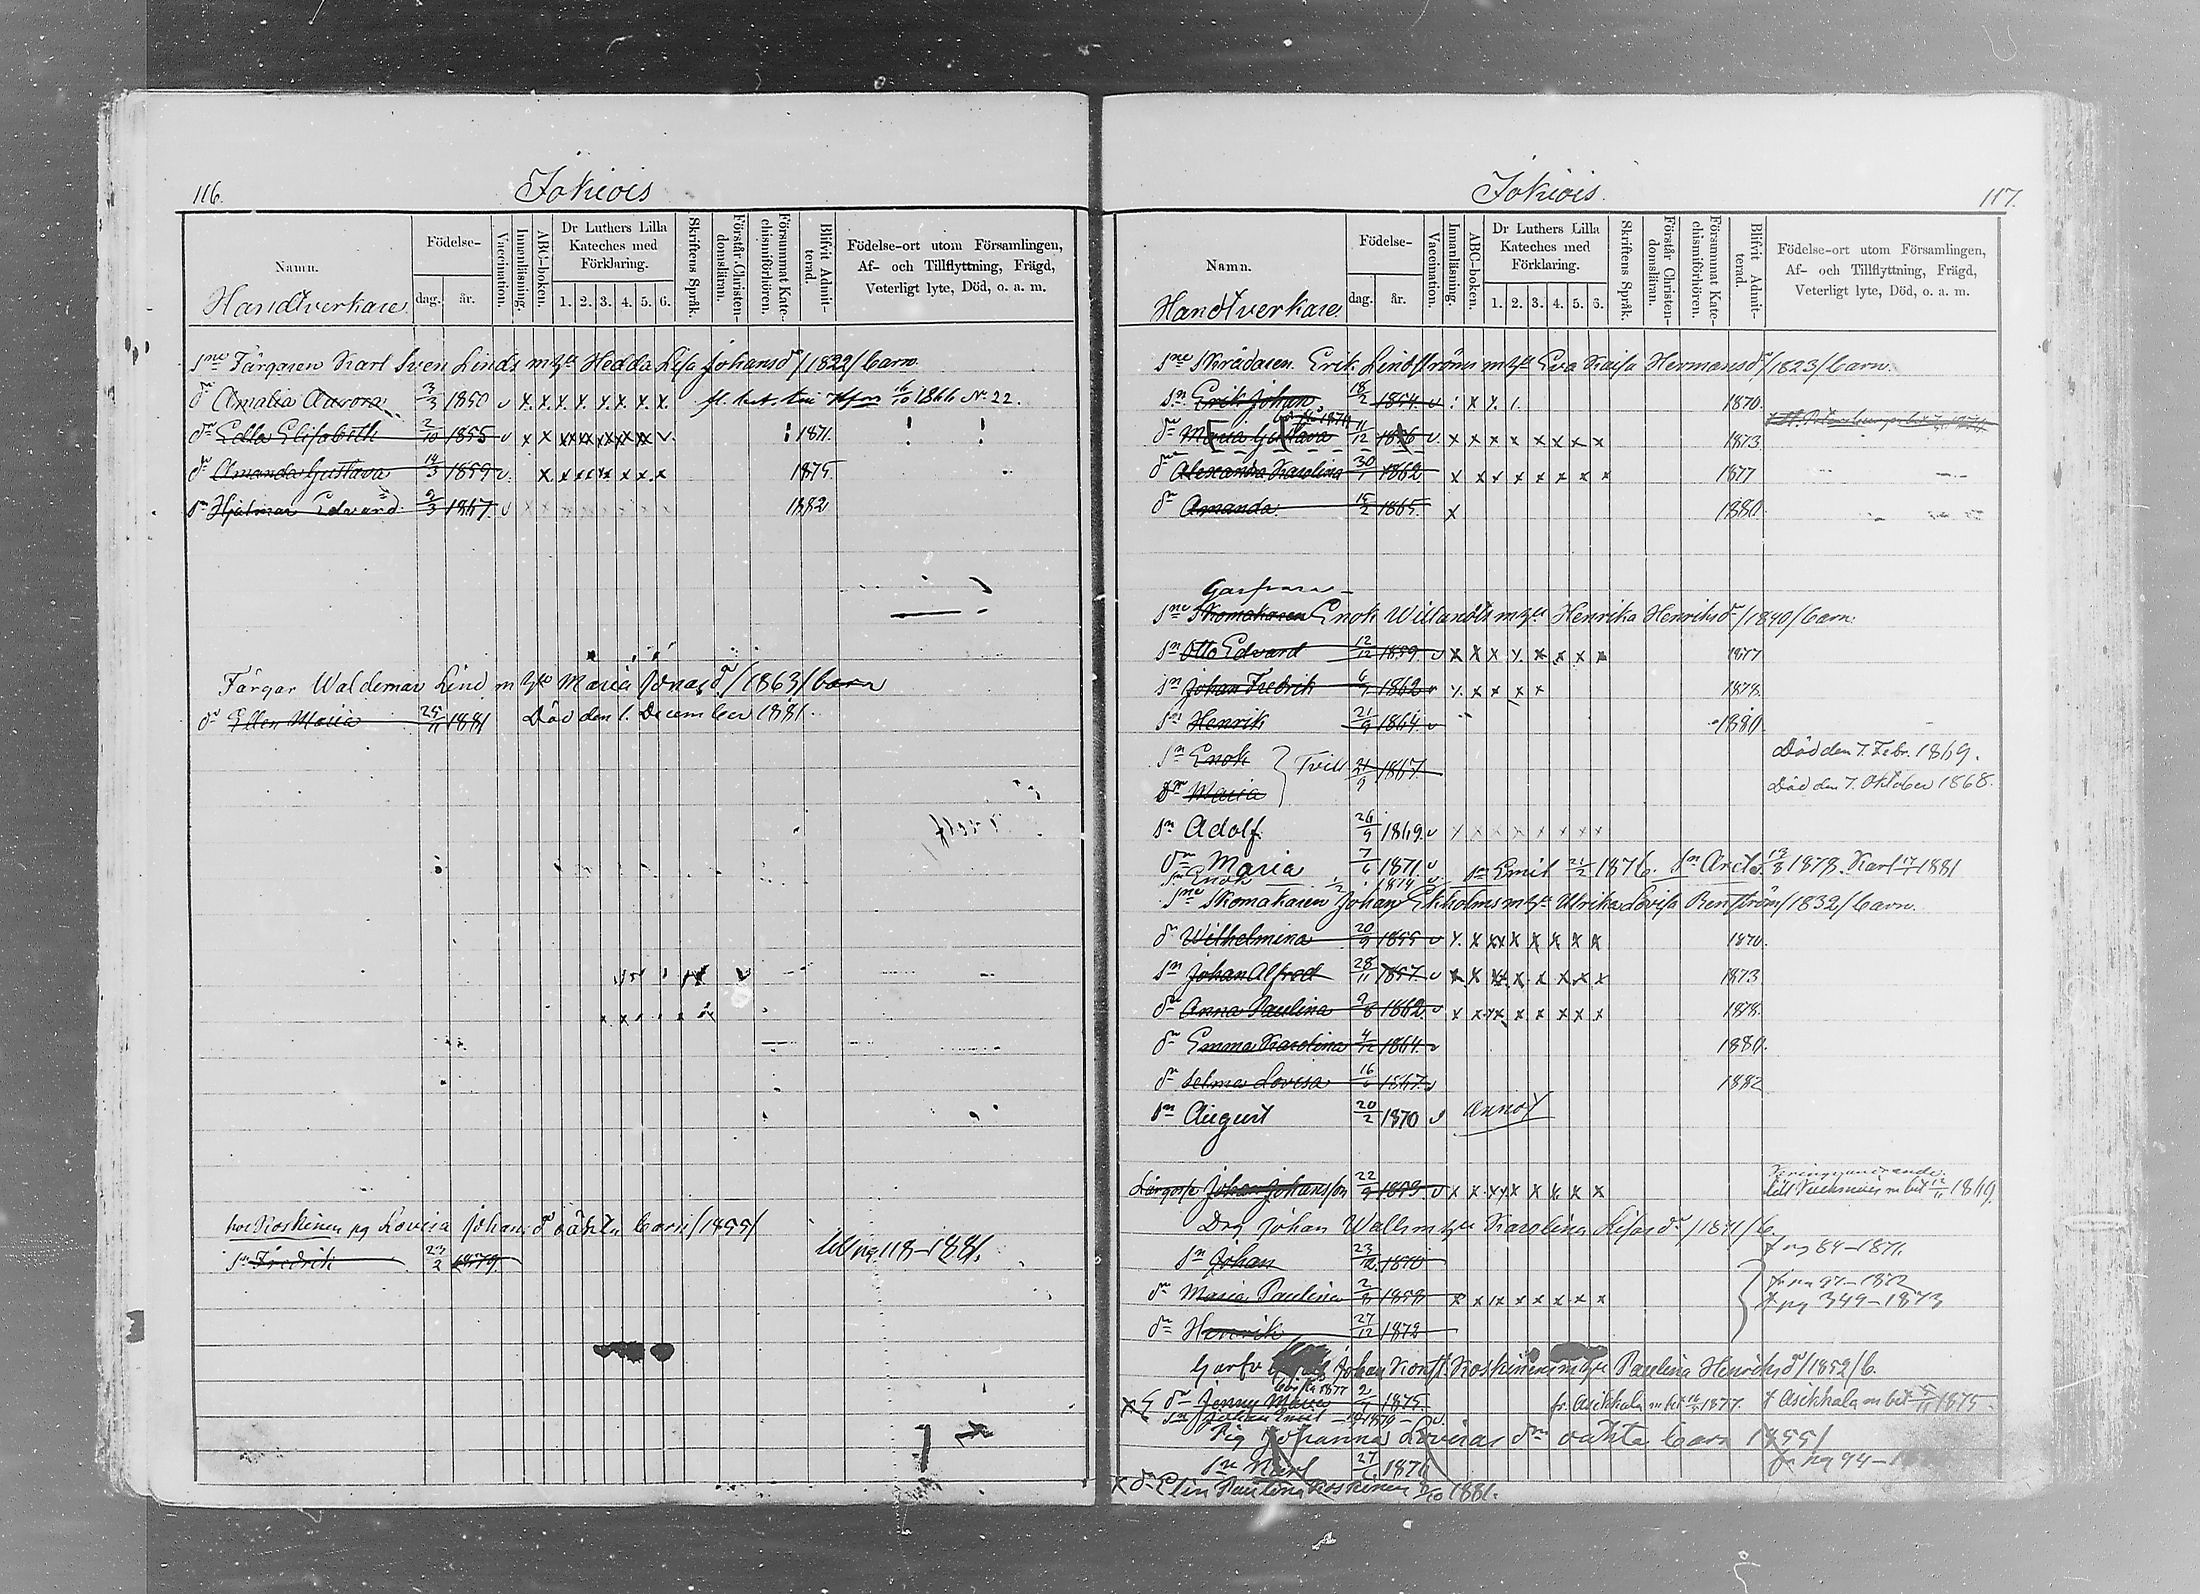 116.
Jokiois
Namn.
Handtverkare
Födelse-
dag.
år.
Vaccination.
Innanläsning.
ABC-boken.
Dr Luthers Lilla Kateches med Förklaring.
1. 2. 3. 4. 5. 6.
Skriftens Språk.
Förstår Christendomsläran.
Försummat Katechismiförhören.
Blifvit Admitterad.
Födelse-ort utom Församlingen,
Af- och Tillflyttning, Frägd,
Veterligt lyte, Död, o. a. m.
sne Färgaren Karl Sven Linds m hu Hedda Lisa Johansdr /1822/ barn
dr Amalia Aurora 3/3 1850 v x x x x x x x x 16/10 1866 No 22.
dr Edla Elisabeth 2/10 1855 v x x xx xx xx x x x v 1871.
dr Amanda Gustava 14/3 1859 v x x x x x x x x 1875.
sn Hjalmar Edvard 2/3 1867 v 1882
Färgar Waldemar Lind m hu Maria Jonasdr /1863/ barn
dr Ellen Maria 25/11 1881 Död den 1. December 1881.
hos Koskinen pg Lovisa Johansdr oäkta barn /1855/
sn Fredrik 23/2 1879. till pg 118-1881.
117.
Jokiois.
Namn.
Handtverkare
Födelse-
dag.
år.
Vaccination.
Innanläsning.
ABC-boken.
Dr Luthers Lilla Kateches med Förklaring.
1. 2. 3. 4. 5. 6.
Skriftens Språk.
Förstår Christendomsläran.
Försummat Katechismiförhören.
Blifvit Admitterad.
Födelse-ort utom Församlingen,
Af- och Tillflyttning, Frägd,
Veterligt lyte, Död, o. a. m.
sne Skrädaren Erik Lindströms m hu Eva Kaisa Hermansdr /1823/ barn.
sn Erik Johan 18/2 1854. v 1870.
dr Maria Gustava 11/12 1856 v x x x x x x x x 1873
dr Alexandra Karolina 30/1 1862 x x x x x x x x 1877
dr Amanda 15/2 1865. x 1880
Garfvare
sne Skomakaren Enok Willandts m hu Henrika Henriksdr /1840/ barn.
sn Otto Edvard 12/12 1859. v x x x x x x x x 1877
sn Johan Fredrik 6/7 1862 v x x x x x 1878.
sn Henrik 21/9 1864. v 1880.
sn Enok Tvill 21/9 1867. Död den 7. Febr. 1869.
dr Maria Död den 7. Oktober 1868.
sn Adolf. 26/9 1869. v x x x x x x x x
dr Maria 7/6 1871. v sn Emil 21/2 1876. sn Arct 1878. Karl 17/1 1881
sn Enok 1874 v
sne Skomakaren Johan Ekholms m hu Ulrika Lovisa Renström /1832/ barn.
dr Wilhelmina 20/9 1855 v x x xx x x x x x 1870.
sn Johan Alfred 28/11 1857. v x x xx x x x x x 1873
dr Anna Paulina 2/8 1862. v x x xx x x x x x 1878.
dr Emma Karolina 4/12 1864. v 1880.
dr Selma Lovisa 16/6 1867. v 1882
sn August 20/2 1870 v annot
Lärgosse Johan Johansson 22/9 1853 v x x xx x x x x x till m bet 12/11 1869.
Drg Johan Walls m hu Karolina Lisasdr /1841/ b.
sn Johan 23/12 1870 f pg 84-1871.
dr Maria Paulina 2/8 1858 x x xx x x x x x fr pg 97-1872
t pg 349-1873
dr Henrik 27/12 1872
Garfv Johan Konst. Koskinens m hu Paulina Henriksdr /1852/ b.
dr Jenny Maria 2/1 1875. fr. Asikkala m bet 1877. t Asikkala m bet 1875.
sn Johan Emil 1879 v.
Pig Johannas Lovisas drs oäkta barn 1855/
sn Karl 27/6 1876 fr pg 94-1
X dr Elin Paulina Koskinen 8/10 1881.